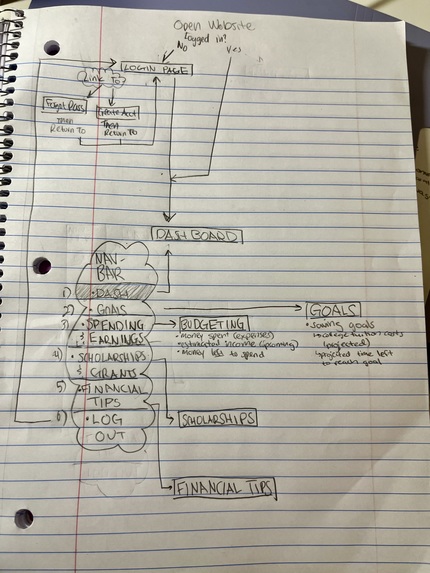 Open Website
Logged in?
No
Yes
LOGIN PAGE
Link To
Forgot Pass
Create Acct
Then
Return To
Then
Return To
DASHBOARD
NAV-
BAR
1) • DASH
2) • GOALS
3) • SPENDING
& EARNINGS
4) • SCHOLARSHIPS
& GRANTS
5) • FINANCIAL
TIPS
6) • LOG
OUT
BUDGETING
• money spent (expenses)
• estimated income (upcoming)
• Money left to spend
GOALS
• saving goals
• college tuition costs
(projected)
• projected time left
to reach goal
SCHOLARSHIPS
FINANCIAL TIPS